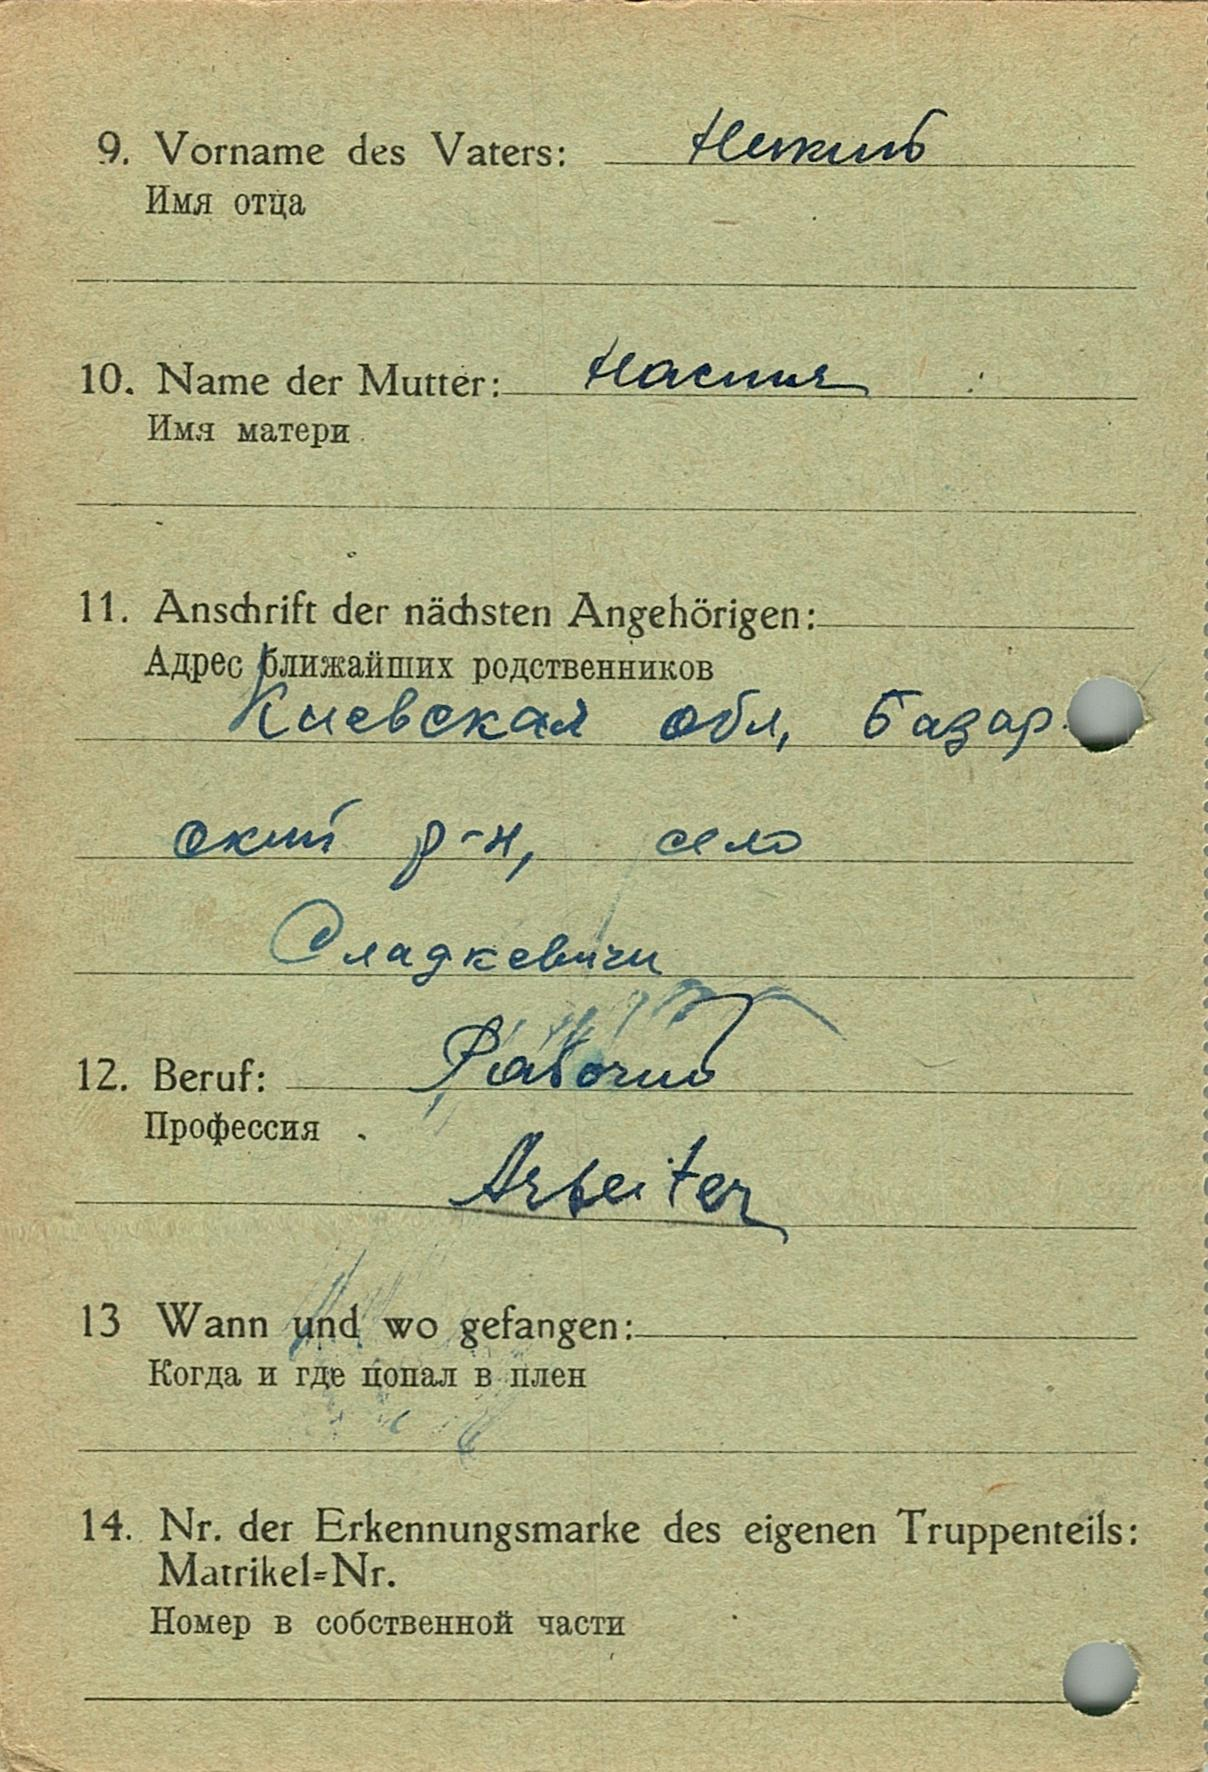 9. Vorname des Vaters:
Имя отца
10. Name der Mutter: Настя
Имя матери
11. Anschrift der nächsten Angehörigen:
Адрес ближайших родственников
Киевская обл, Базар-
ский р-н, село
Сладкевичи
12. Beruf: Рабочий
Профессия
Arbeiter
13 Wann und wo gefangen:
Когда и где попал в плен
14. Nr. der Erkennungsmarke des eigenen Truppenteils:
Matrikel=Nr.
Номер в собственной части